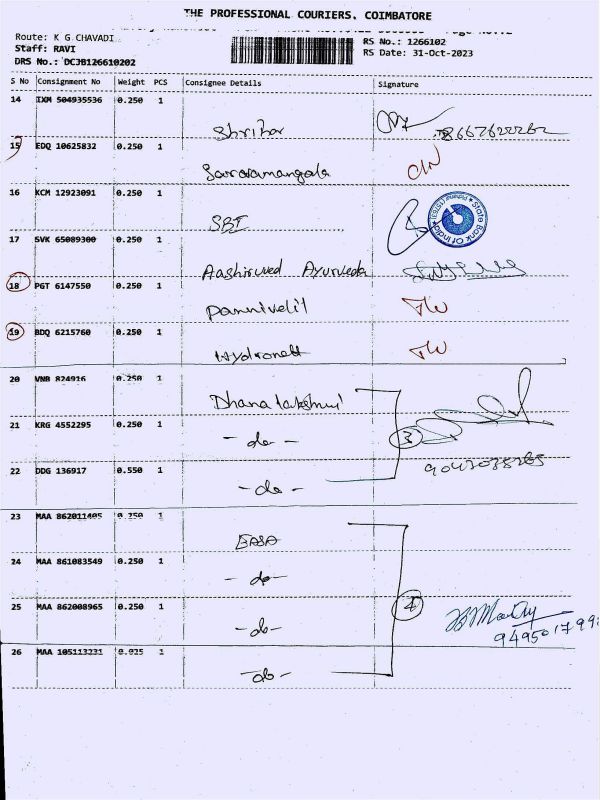 THE PROFESSIONAL COURIERS, COIMBATORE
Route: K G CHAVADI
Staff: RAVI
DRS No.: DCJB126610202
RS No.: 1266102
RS Date: 31-Oct-2023
S No Consignment No Weight PCS Consignee Details Signature
14 IXM 504935536 0.250 1
Shrihar
15 EDQ 10625832 0.250 1
16 KCM 12923091 0.250 1
SBI
State Bank Of India
17 SVK 65089300 0.250 1
Aashirwed Ayurveda
18 PGT 6147550 0.250 1
Pannivelil
19 BDQ 6215760 0.250 1
20 VNB 824916 0.250 1
Dhanalakshmi
21 KRG 4552295 0.250 1
- do -
3
22 DDG 136917 0.550 1
- do -
23 MAA 862011405 0.250 1
EASA
24 MAA 861083549 0.250 1
- do -
25 MAA 862008965 0.250 1
4
- do -
26 MAA 105113231 0.025 1
- do -